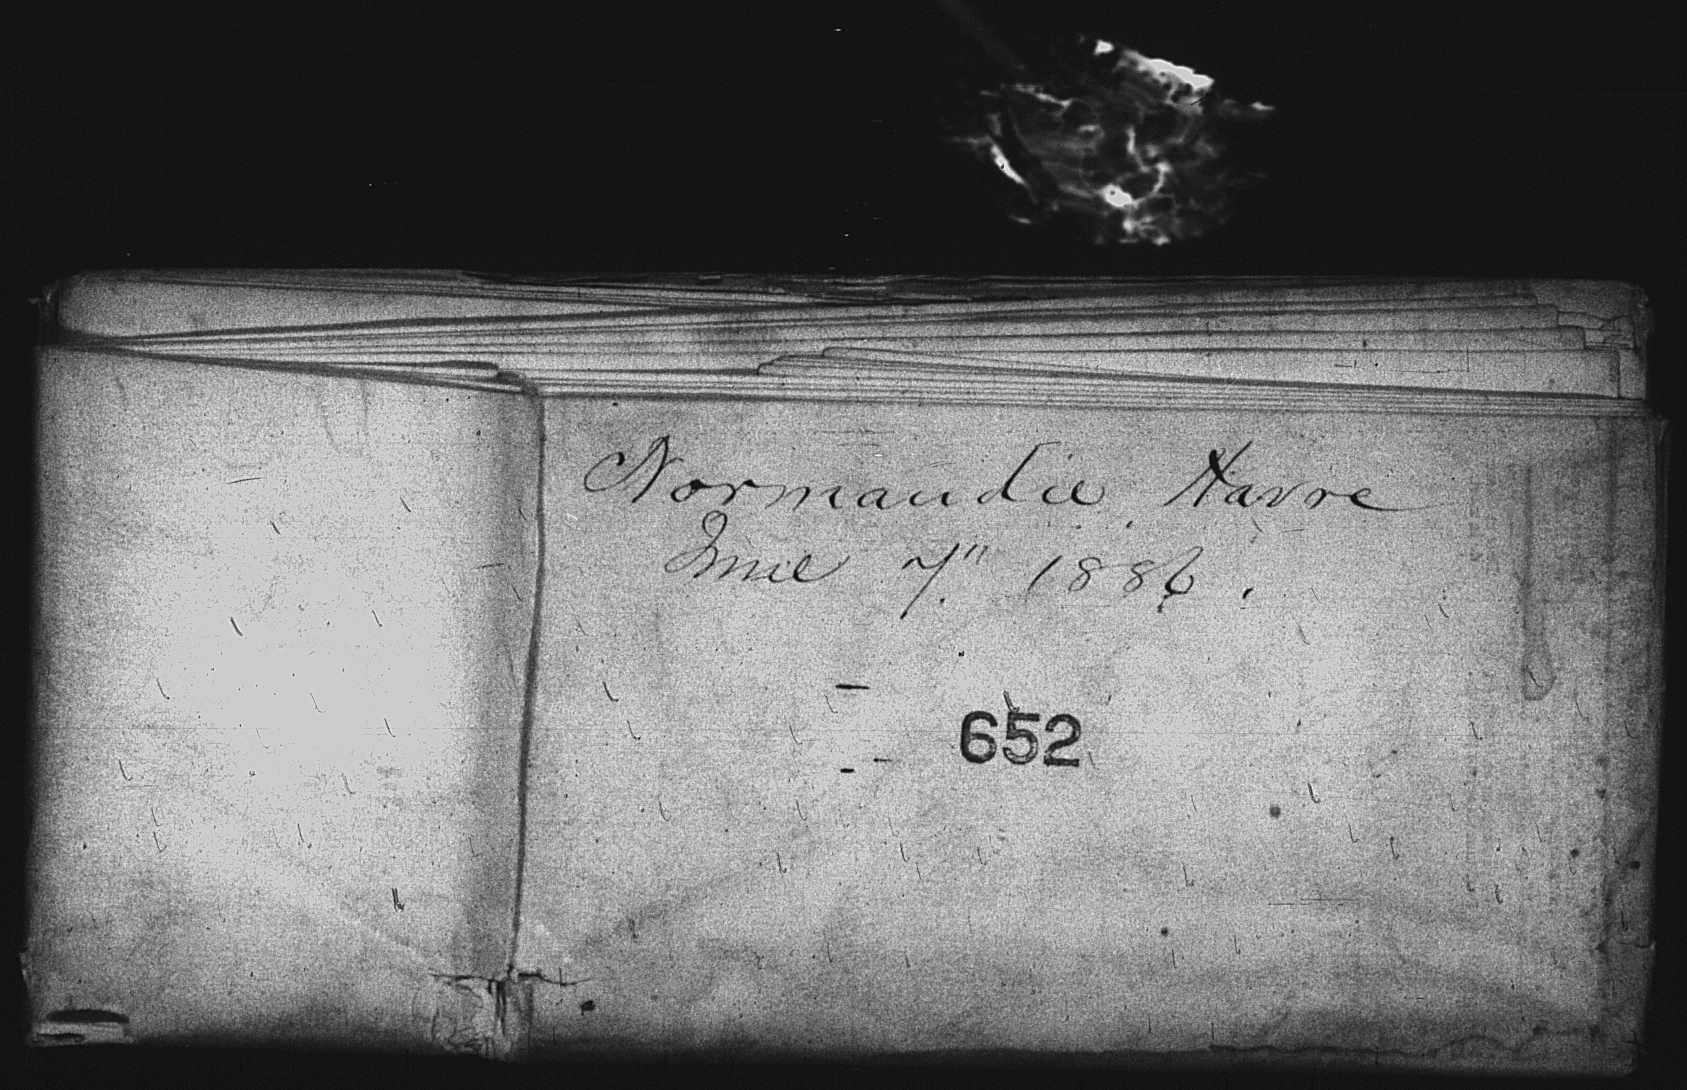 Normandie, Havre
June 7" 1886.
652